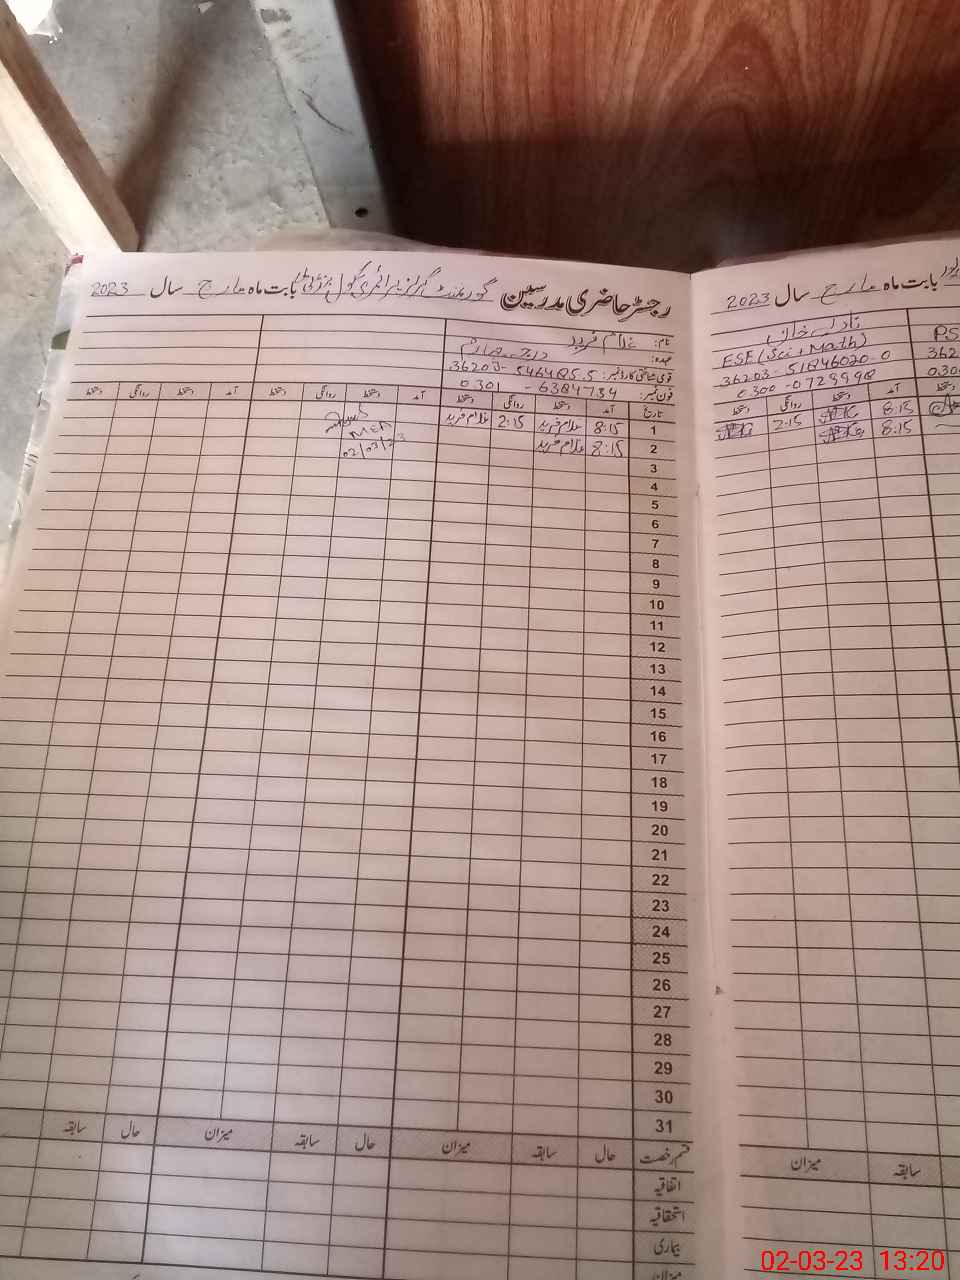 رجسٹر حاضری مدرسین گورنمنٹ گرلز پرائمری سکول بابت ماہ مارچ سال 2023
نام: غلام فرید
عہدہ: درجہ چہارم
قومی شناختی کارڈ نمبر: 36203-5464185.5
فون نمبر: 0301-6384734
تاریخ آمد دستخط روانگی دستخط آمد دستخط روانگی دستخط آمد دستخط روانگی دستخط
1 8:15 غلام فرید 2:15 غلام فرید
2 8:15 غلام فرید
MEA
02/03/23
3
4
5
6
7
8
9
10
11
12
13
14
15
16
17
18
19
20
21
22
23
24
25
26
27
28
29
30
31
قسم رخصت حال سابقہ میزان حال سابقہ میزان حال سابقہ
اتفاقیہ
استحقاقیہ
بیماری
میزان
بابت ماہ مارچ سال 2023
نادیہ خان
ESE (Sci, Math)
36203-51846020-0
0300-0729998
آمد دستخط روانگی دستخط
8:15 2:15
8.15
PS
362
030
سابقہ میزان
02-03-23 13:20